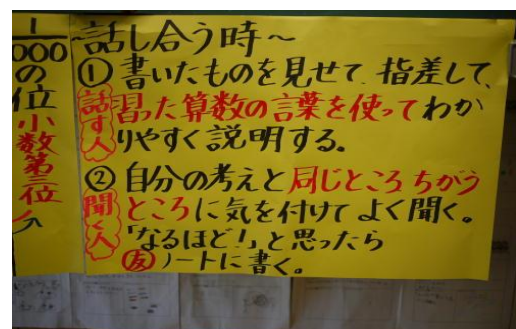 1/1000の位
小数第三位
~話し合う時~
①書いたものを見せて、指差して、
話す人
習った算数の言葉を使ってわか
りやすく説明する。
②自分の考えと同じところちがう
聞く人
ところに気を付けてよく聞く。
「なるほど!」と思ったら
友ノートに書く。